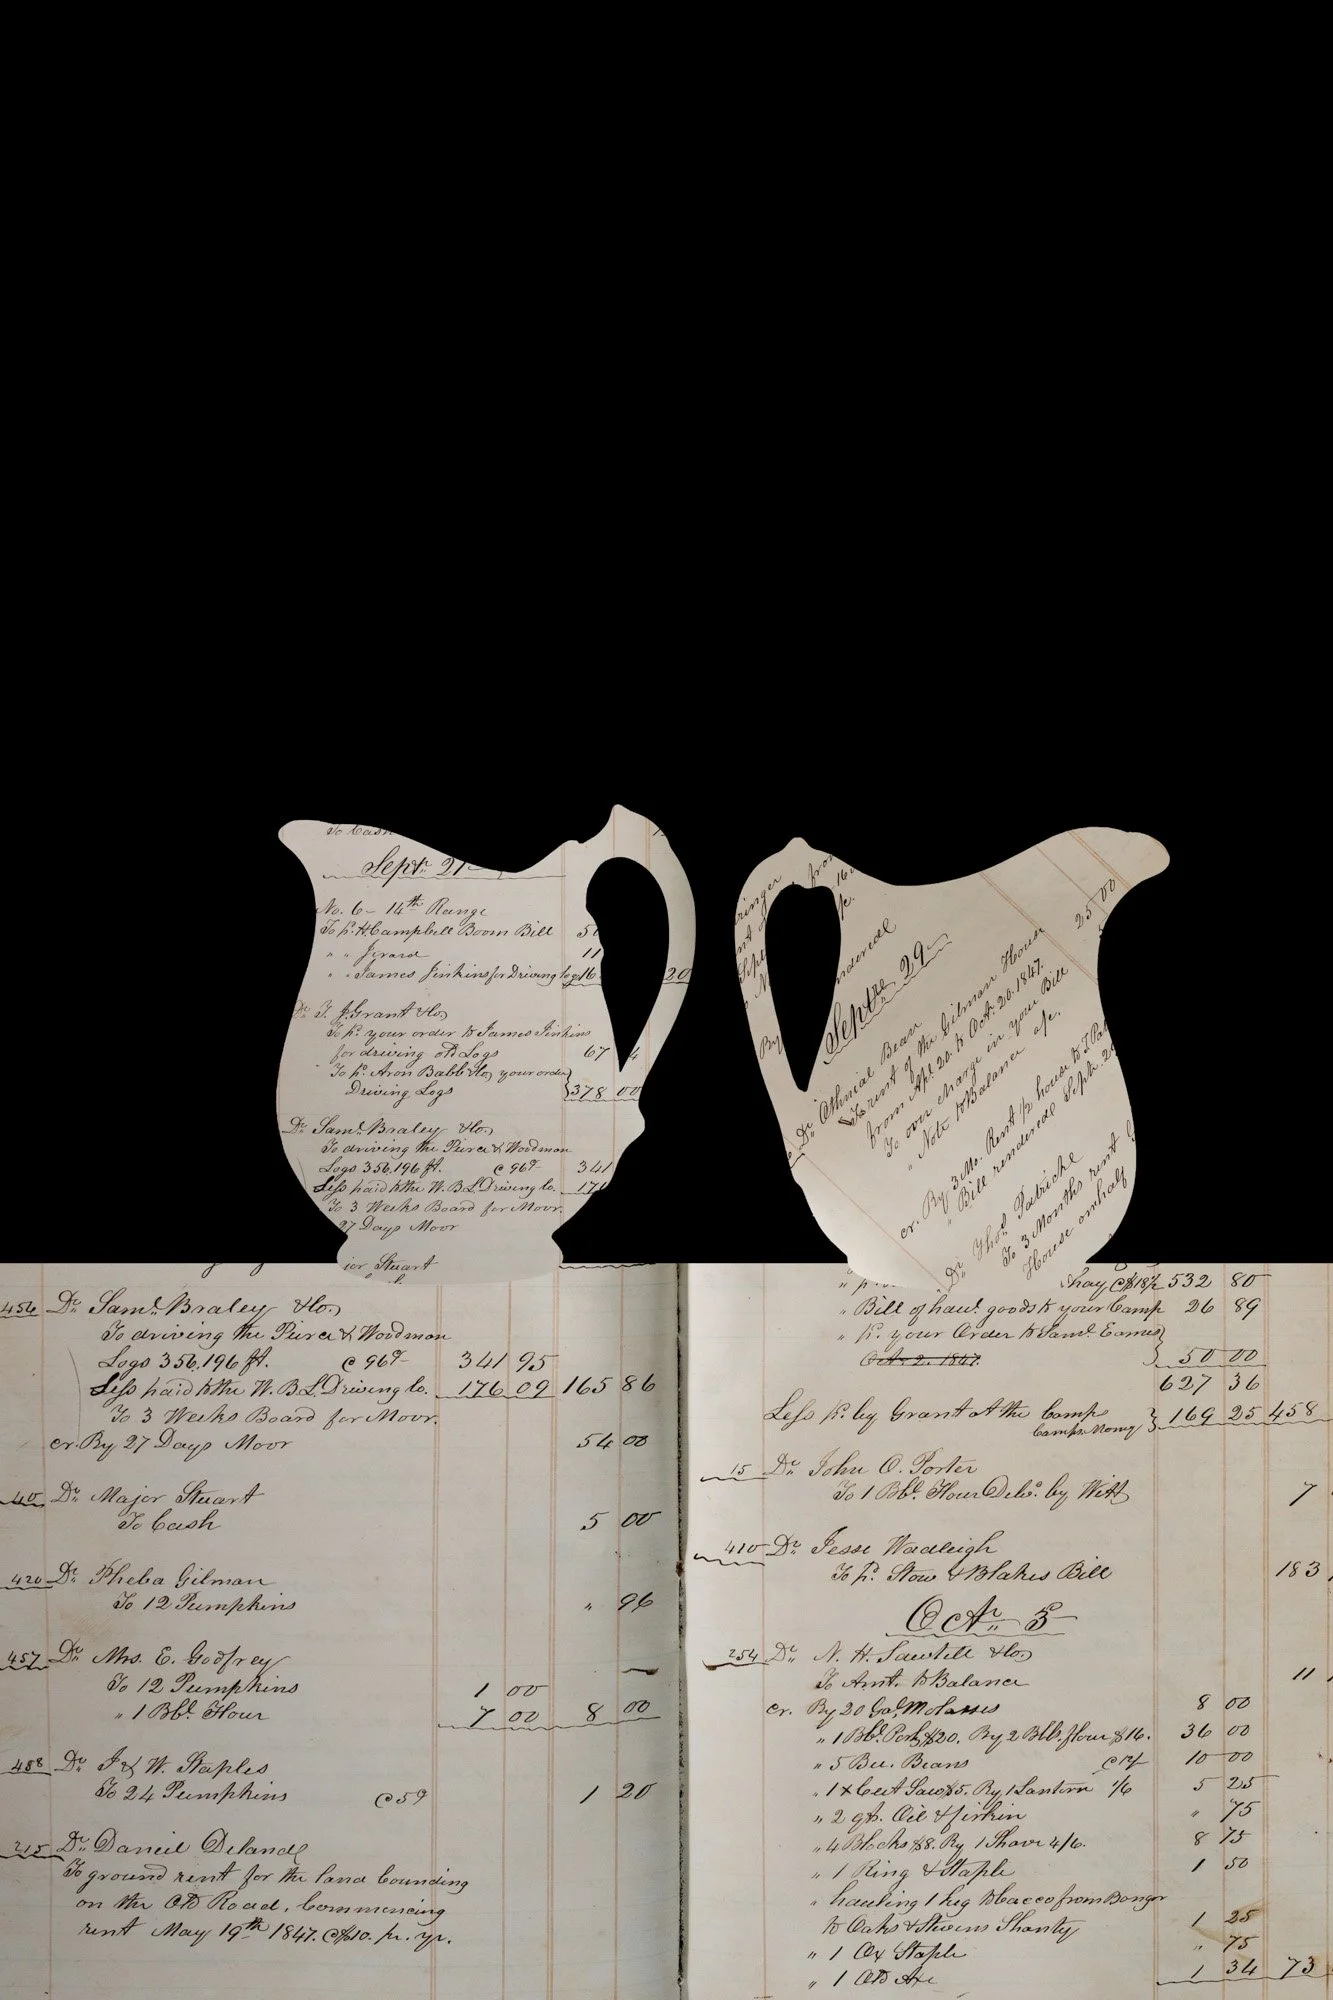 To Cash
Septr. 21
No. 6 - 14th Range
To pd. H. Campbell Boom Bill 5
" " Girard 11
" " James Jinkins for Driving logs 16 20
Dr. T. J. Grant & Co.
To pd. your order to James Jinkins
for driving old Logs 67 4
To pd. Aron Babb & Co. your order
Driving Logs 378 00
Dr. Saml. Braley & Co.
To driving the Peirce & Woodman
Logs 356,196 ft. @ 96c 341
Less paid to the W. B. L. Driving Co. 176
To 3 Weeks Board for Moor.
27 Days Moor
jor Stuart
ringer from
nt of 16
Sept
By
ndered
25 00
Septre. 29
Dr. Othnial Bean
To rent of the Gilman House
from Apl. 20. to Oct. 20. 1847.
To over charge in your Bill
" Note to Balance a/c.
cr. By 3 Mo. Rent p house to T. Pat
" Bill rendered Septr. 2
Dr. Thos. Patricke
To 3 Months rent
House onehalf
456 Dr. Saml. Braley & Co.
To driving the Peirce & Woodman
Logs 356,196 ft. @ 96c 341 95
Less paid to the W. B. L. Driving Co. 176 09 165 86
To 3 Weeks Board for Moor.
cr. By 27 Days Moor 54 00
40 Dr. Major Stuart
To Cash 5 00
420 Dr. Pheba Gilman
To 12 Pumpkins " 96
457 Dr. Mrs. E. Godfrey
To 12 Pumpkins 1 00
" 1 Bbl. Flour 7 00 8 00
488 Dr. J & W. Staples
To 24 Pumpkins @ 5c 1 20
215 Dr. Daniel Deland
To ground rent for the land bounding
on the Old Road. Commencing
rent May 19th 1847. @ $10. pr. yr.
hay @ $18 532 80
" Bill of haul. goods to your Camp 26 89
" pd. your Order to Saml. Eames
Oct. 2. 1847. 50 00
627 36
Less pd. by Grant at the Camp
Camp Money 169 25 458
15 Dr. John O. Porter
To 1 Bbl. Flour Deld. by Witt 7
410 Dr. Jesse Wadleigh
To pd. Stow & Blakes Bill 183
Octr. 5
254 Dr. N. H. Sawtell & Co.
To Amt. to Balance 11
cr. By 20 Gal. Molasses 8 00
" 1 Bbl. Pork $20. By 2 Bbls. flour $16. 36 00
" 5 Bu. Beans @ 12/ 10 00
" 1 X Cut Saw $5. By 1 Lantern 1/6 5 25
" 2 qts. Oil & firkin " 75
" 4 Blocks $8. By 1 Shave 4/6. 8 75
" 1 Ring & Staple 1 50
" hauling 1 keg tobacco from Bangor
to Oaks & Stevens Shanty 1 25
" 1 Ox Staple " 75
" 1 Old Axe 1 34 73